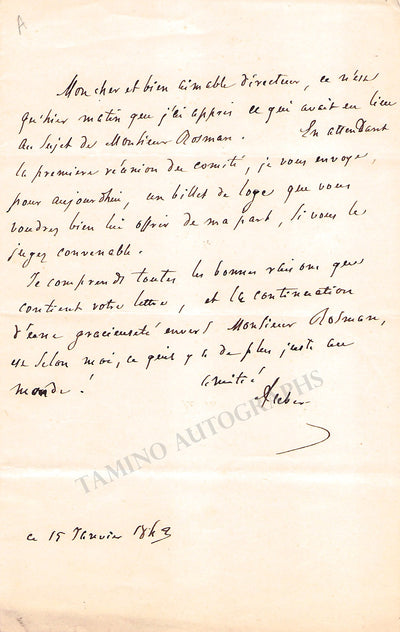 A
Mon cher et bien aimable directeur, ce n'est
qu'hier matin que j'ai appris ce qui avait eu lieu
au sujet de Monsieur Rosman. En attendant
la première réunion du comité, je vous envoye,
pour aujourdhui, un billet de loge que vous
voudrez bien lui offrir de ma part, si vous le
jugez convenable.
Je comprends toutes les bonnes raisons que
contient votre lettre, et la continuation
d'une gracieuseté envers Monsieur Rosman,
est selon moi, ce qu'il y a de plus juste au
monde!
amitié
Auber
TAMINO AUTOGRAPHS
ce 15 Janvier